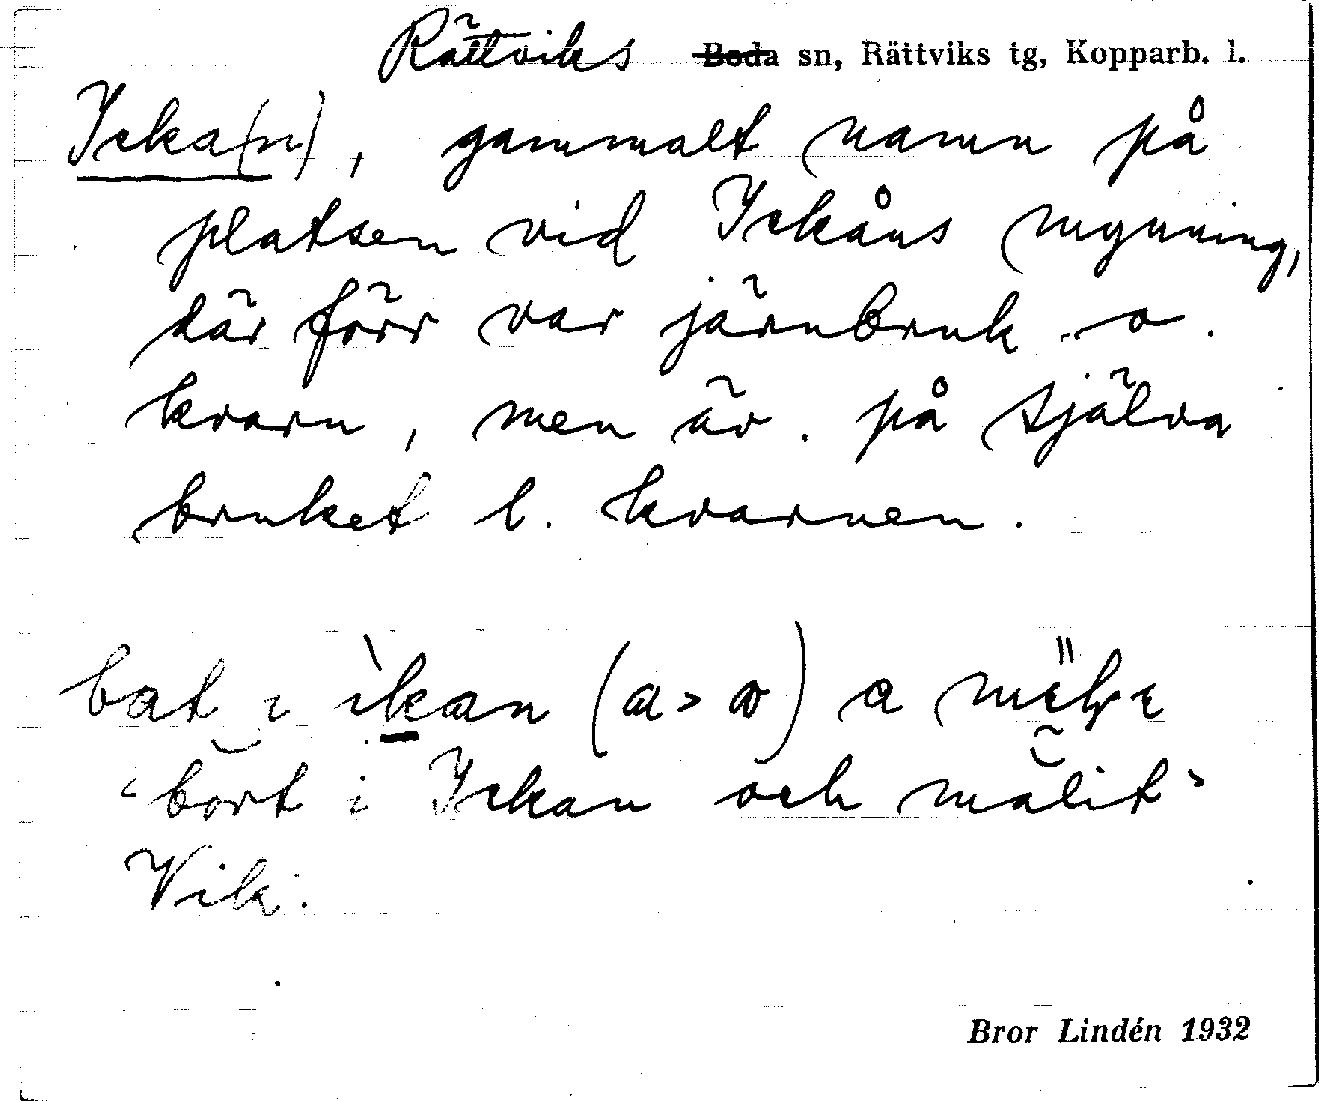 Rättviks Boda sn, Rättviks tg, Kopparb. l.
Icka(n), gammalt namn på
platsen vid Ickåns mynning,
där förr var järnbruk o.
kvarn, men äv. på själva
bruket l. kvarnen.
bat i ìkan (a > α) a
'bort i Ickan och målit'
Vik.
Bror Lindén 1932